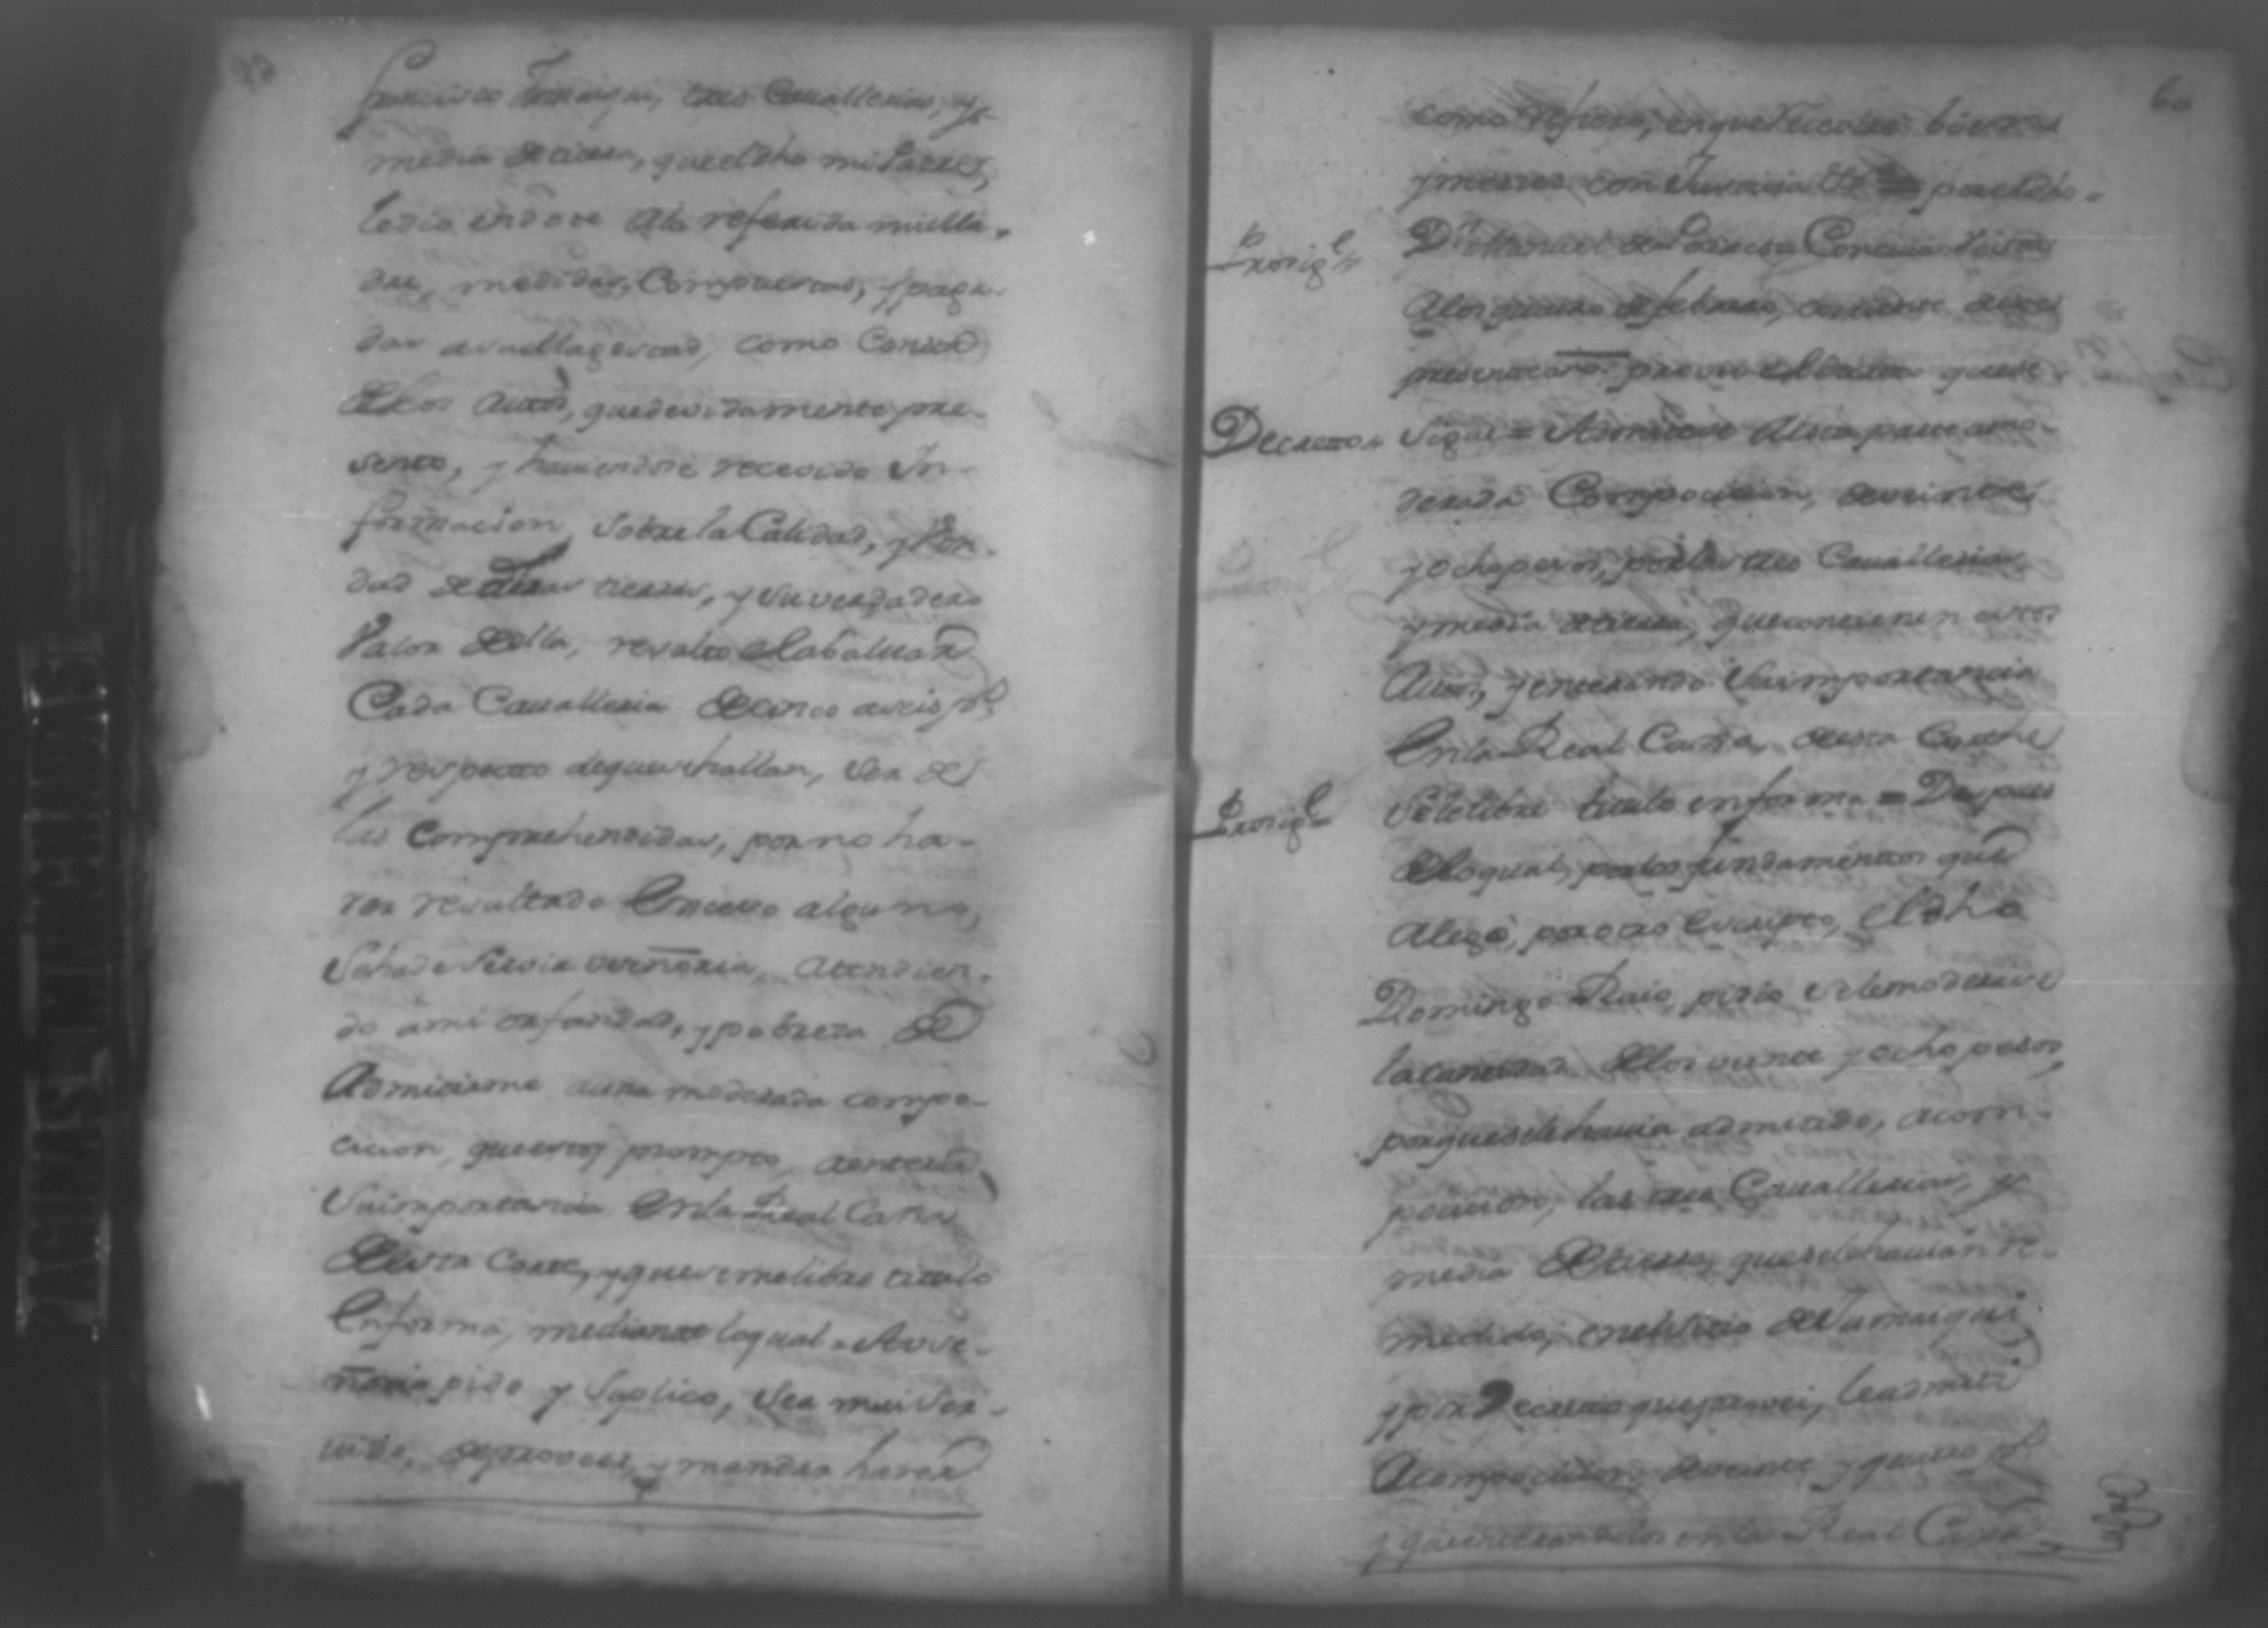 Francisco Jumaiqui, tres Cauallerias, y
media de tierra, que el dho mi Padre,
le dio en dote a la referida mi Ma-
dre, medidas, Compuestas, y paga-
das a su Magestad, como Consta
de los autos, que devidamente pre-
sento, y haviendose recevido In-
formacion, sobre la Calidad, y Bon-
dad de dhas tierras, y su verdadero
Valor de ella, resulto el abaluar
Cada Caualleria de cinco a seis ps
y respecto de que se hallan, ser de
las Comprehendidas, por no ha-
ver resultado Exceso alguno,
Se ha de Servir vseñoria, atendien-
do a mi orfandad, y pobreza de
Admitirme a una moderada compo-
cicion, que estoy prompto, a enterar
Su importancia En la Real Caxa
de esta Corte, y que se me libre titulo
En forma, mediante lo qual = A vse-
ñoria pido y Suplico, Sea mui Ser-
uido, de proveer, y mandar hacer
60
como refiero, en que recevire bien
y merced con Justicia &a = por el dho
Prosigue
Dn Manuel de
a los quatro de febrero, corriente de este
presente año provei el decreto que se
Decreto =
Sigue = Admitese a esta parte a mo-
derada Composicion, de veinte
y ocho pesos, por las tres Cauallerias
y media de tierra, que contienen estos
Autos, y enterando Su importancia
En la Real Caxa, de esta Corthe
Prosigue
Se le libre titulo en forma = Despues
de lo qual, por los fundamentos que
alego, por otro Escripto, el dho
Domingo pidio se le moderase
la cantidad de los veinte y ocho pesos,
porque se le havia admitido, a com-
posicion, las tres Cauallerias, y
media de tierra, que se le havian re-
medido, en el Sitio de Jumaiqui
y por Decreto que provei, le admiti
A composicion, de veinte y quatro ps
y que enterandolos en la Real Caxa